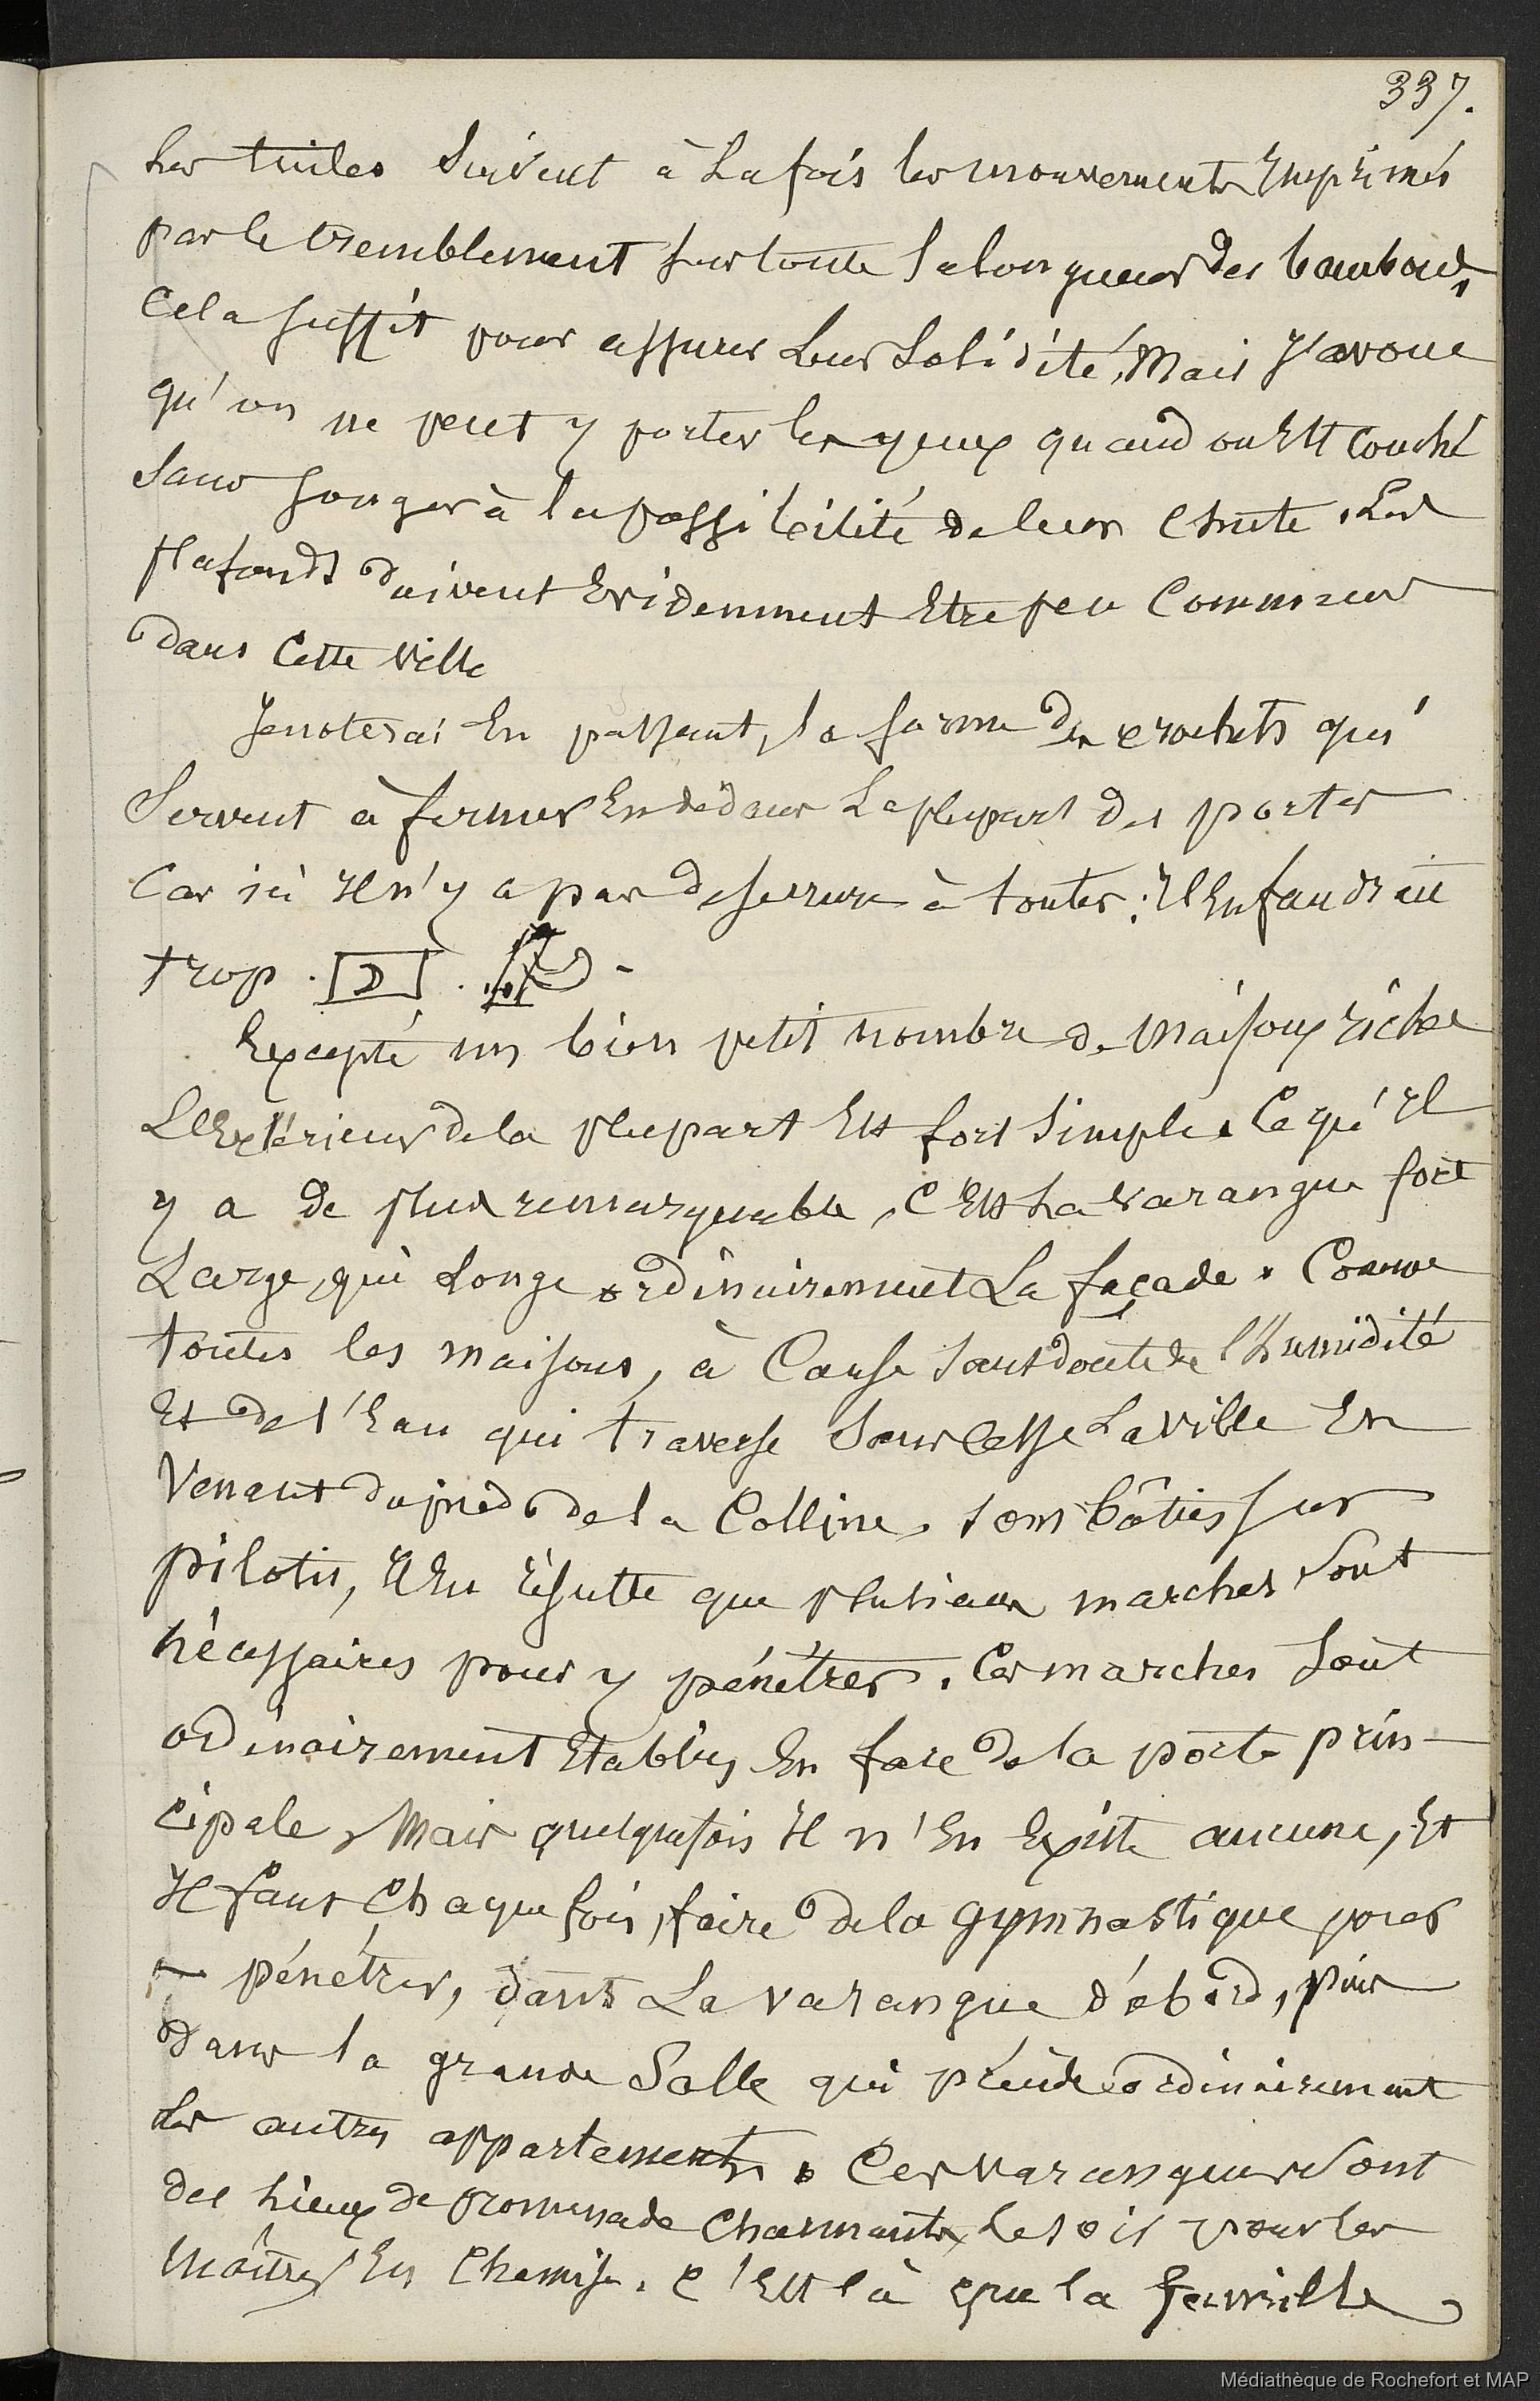 337.
Les tuiles suivent à la fois les mouvements Imprimés
par le tremblement sur toute la longueur des bambous,
Cela suffit pour assurer leur solidité, Mais J'avoue
qu'on ne peut y porter les yeux quand on Est couché
sans songer à la possibilité de leur chute. Les
plafonds doivent Evidemment Etre peu Communs
dans Cette ville
Je noterai En passant, la forme des crochets qui
servent à fermer En dedans la plupart des portes
Car ici Il n'y a pas de serrure à toutes : Il En faudrait
trop .
Excepté un bien petit nombre de maisons riches
L'Extérieur de la plupart Est fort simple. Ce qu'Il
y a de plus remarquable, C'Est la varangue fort
Large, qui longe ordinairement La façade. Comme
toutes les maisons, à Cause sans doute de l'humidité
Et de l'Eau qui traverse sans cesse La ville En
venant du pied de la Colline, sont bâties sur
pilotis, Il En résulte que plusieurs marches sont
nécessaires pour y pénétrer. Ces marches sont
odinairement Etablies En face de la porte prin-
cipale, Mais quelquefois Il n'En Existe aucune, Et
Il faut Chaque fois, faire de la gymnastique pour
y pénétrer, dans La varangue d'abord, puis
dans la grande Salle qui précède ordinairement
les autres appartements. Ces varangues sont
des lieux de promenade charmants, Le soir pour les
maîtres En Chemise. C'Est là que la famille
Médiathèque de Rochefort et MAP